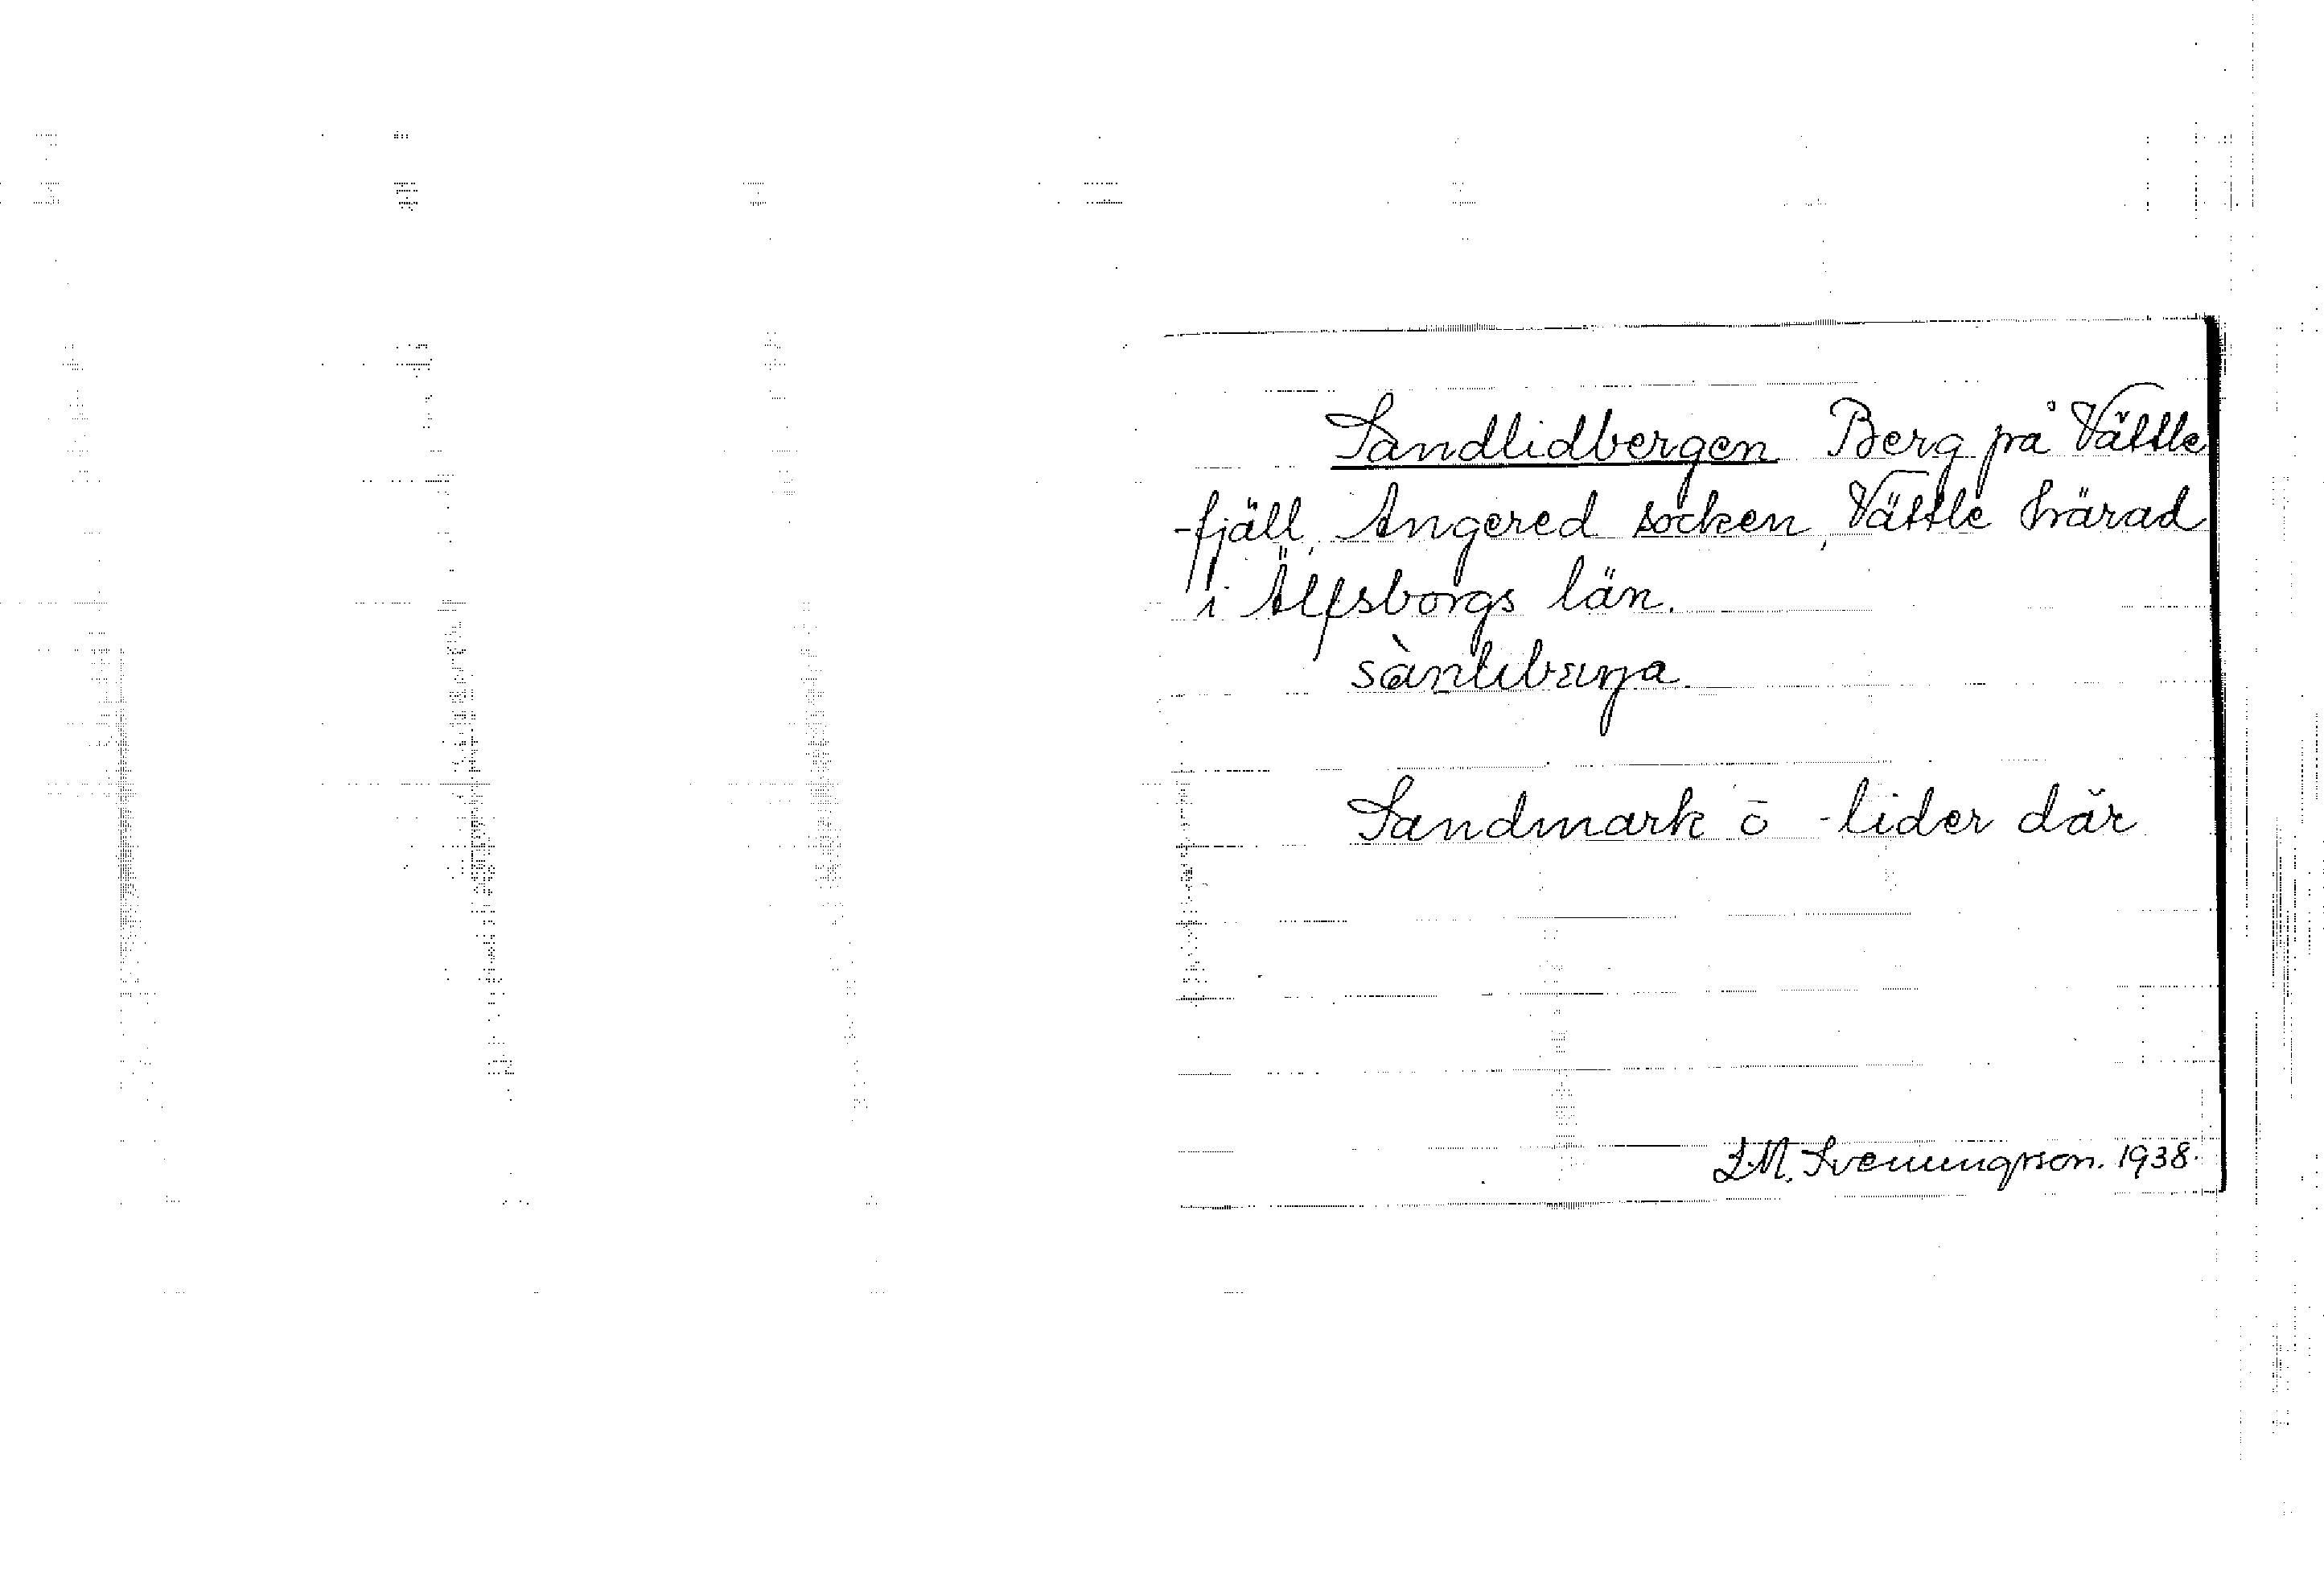 Sandlidbergen Berg på Vättle
-fjäll, Angered socken, Vättle härad
i Älfsborgs län.
Sandmark o -lider där
J.M. Svenungsson. 1938.